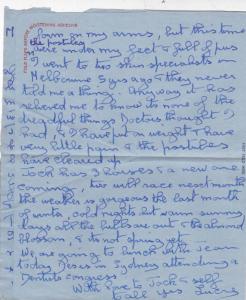 form on my arms, but this time
the pustules
is under my feet & full of pus
I went to two skin specialists in
Melbourne 5 yrs ago & they never
told me a thing. Anyway it has
relieved me to know its none of the
dreadful things Doctors thought I
had, & I have put on weight & have
very little pain & the pustules
have cleared up
Jock has 3 horses & a new one
coming, two will race next month
the weather is gorgeous the last month
of winter, cold nights but warm sunny
days all the bulbs are out & the almond
blossom, & its not spring yet
We are going to lunch with Jean
today Des is in Sydney attending a
Dentists congress
With love to Jock & self
to all yes